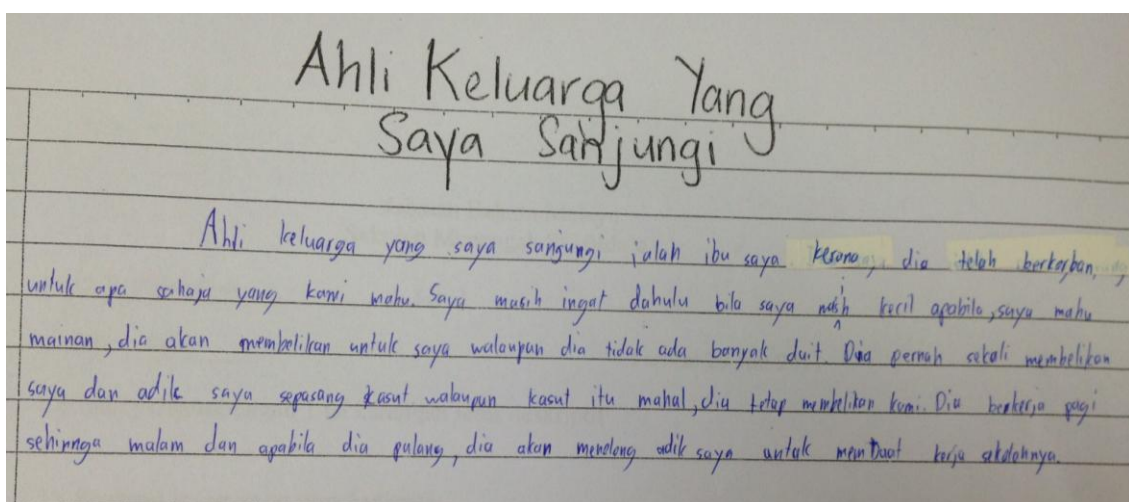 Ahli Keluarga Yang
Saya Sanjungi
Ahli keluarga yang saya sanjungi ialah ibu saya kerana, dia telah berkorban,
untuk apa sahaja yang kami mahu. Saya masih ingat dahulu bila saya masih kecil apabila, saya mahu
mainan, dia akan membelikan untuk saya walaupun dia tidak ada banyak duit. Dia pernah sekali membelikan
saya dan adik saya sepasang kasut walaupun kasut itu mahal, dia tetap membelikan kami. Dia berkerja pagi
sehinnga malam dan apabila dia pulang, dia akan menolong adik saya untuk membuat kerja sekolahnya.